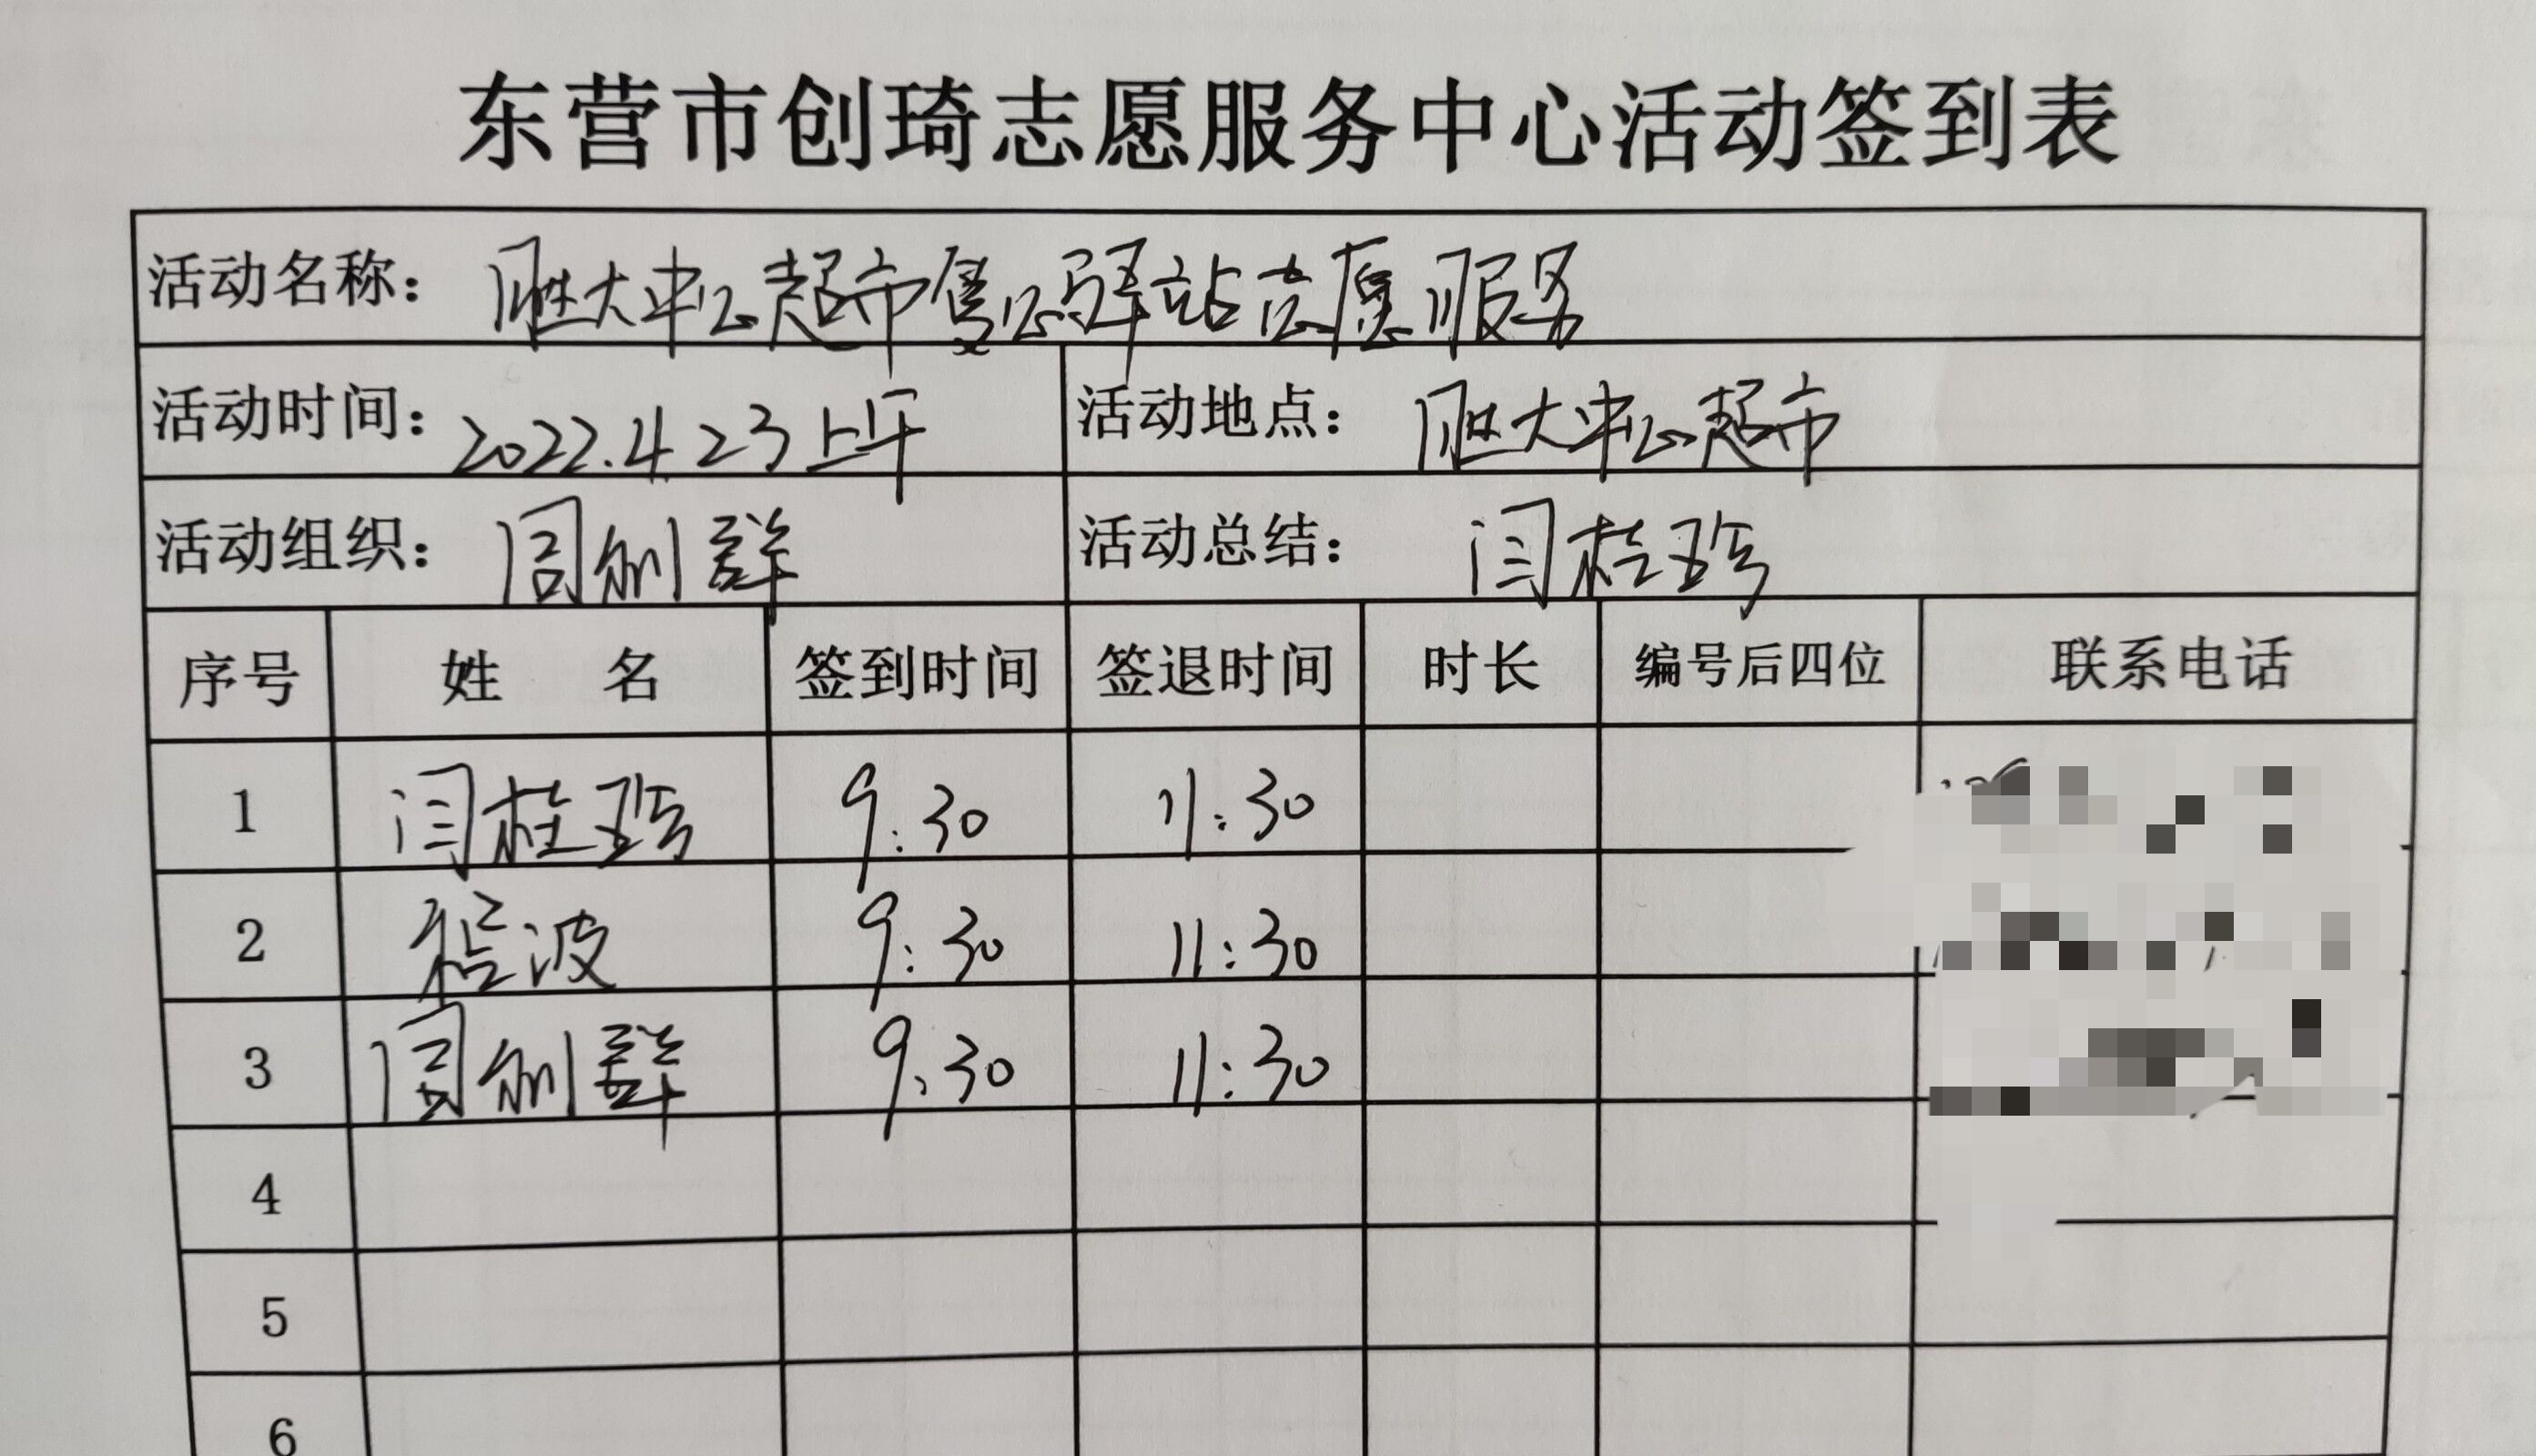 东营市创琦志愿服务中心活动签到表
活动名称： 胜大中心超市售心驿站志愿服务
活动时间： 2022.4 23 上午 活动地点： 胜大中心超市
活动组织： 活动总结： 闫桂珍
序号 姓 名 签到时间 签退时间 时长 编号后四位 联系电话
1 闫桂珍 9:30 11:30
2 程波 9:30 11:30
3 9:30 11:30
4
5
6